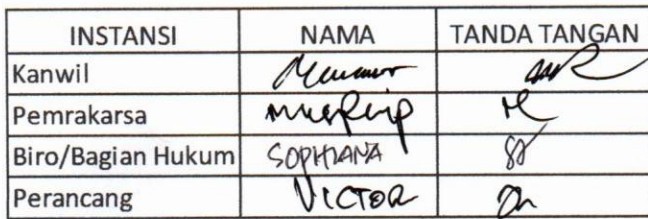 INSTANSI NAMA TANDA TANGAN
Kanwil
Pemrakarsa
Biro/Bagian Hukum SOPHIANA
Perancang VICTOR